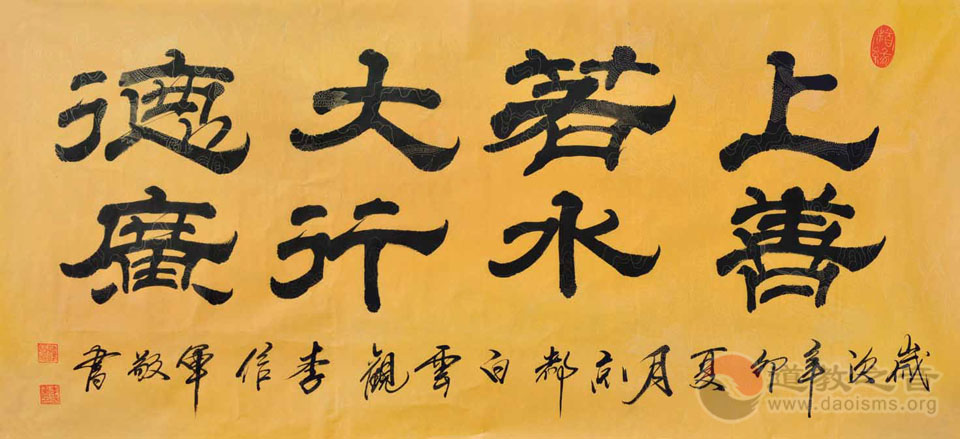 上善
若水
大行
德廣
歲次辛卯夏月京都白雲觀李信軍敬書
道教之音
www.daoisms.org